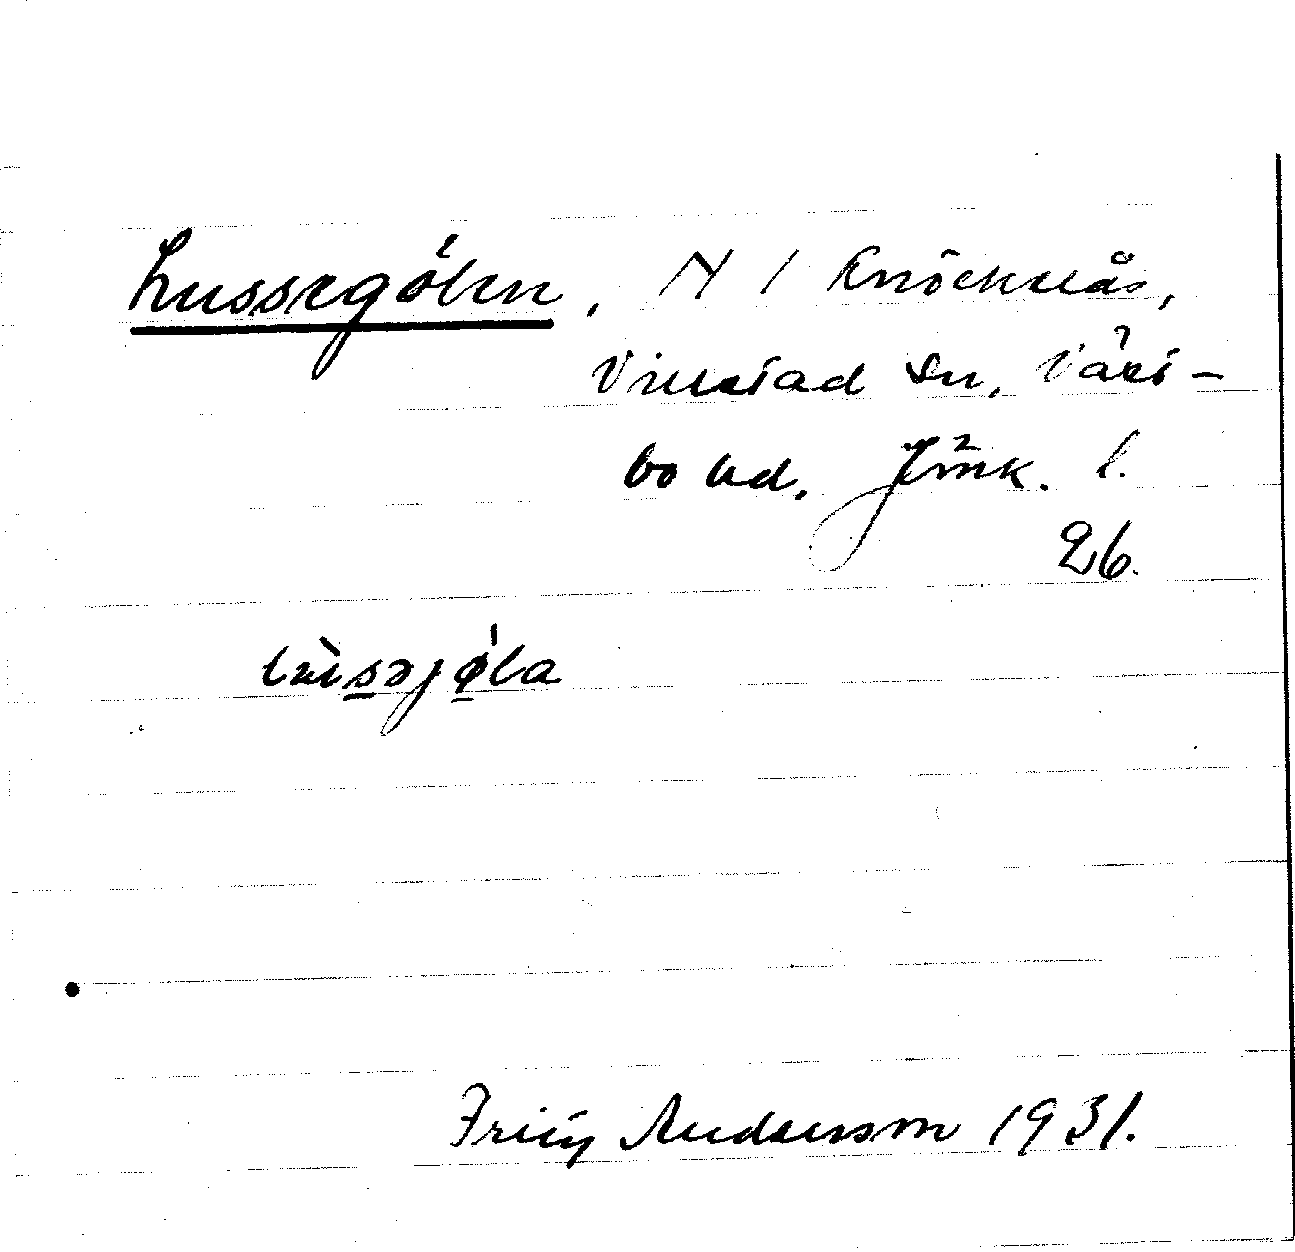 Lussegölen, N 1 Knöcknås,
Villstad sn, Väst-
bo hd, Jönk. l.
26.
lùsəjø̀la
Fritz Andersson 1931.